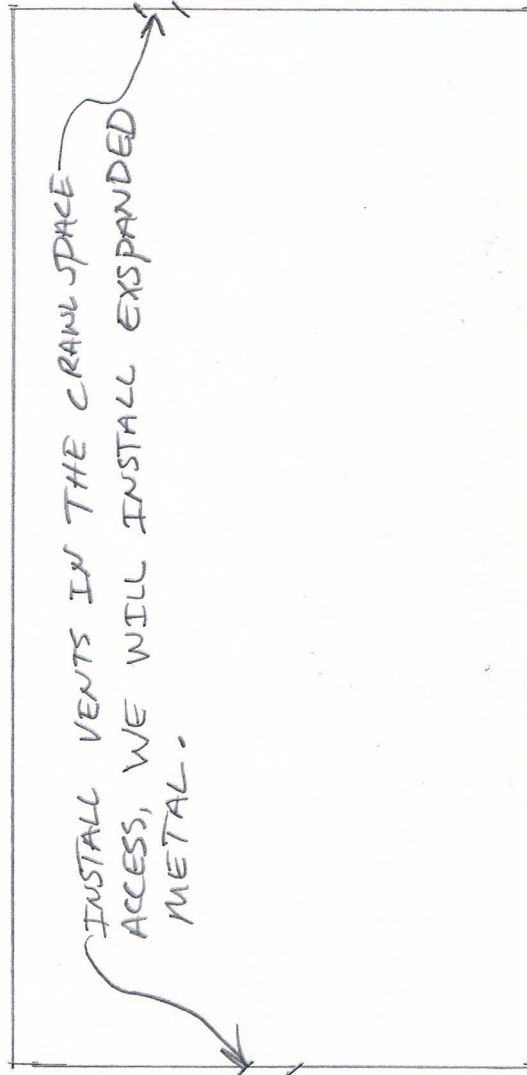 INSTALL VENTS IN THE CRAWL SPACE
ACCESS, WE WILL INSTALL EXSPANDED
METAL.